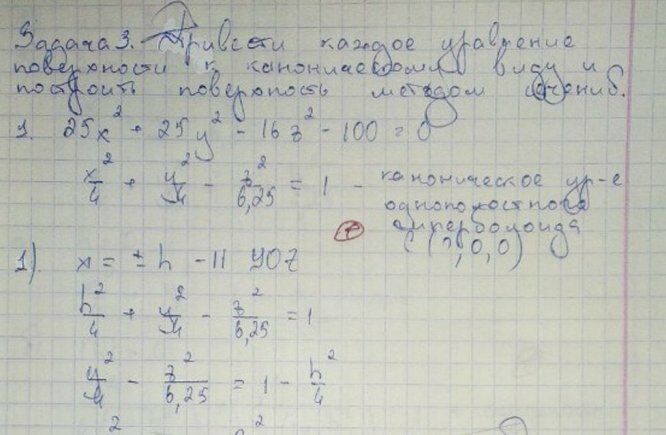 Задача 3. Привести каждое уравнение
поверхности к каноническому виду и
построить поверхность методом сечений.
1. 25x² + 25y² - 16z² - 100 = 0
x²/4 + y²/4 - z²/6,25 = 1 - каноническое ур-е
однополостного
гиперболоида
C (0,0,0)
1). x = ± h - 11 YOZ
h²/4 + y²/4 - z²/6,25 = 1
y²/4 - z²/6,25 = 1 - h²/4